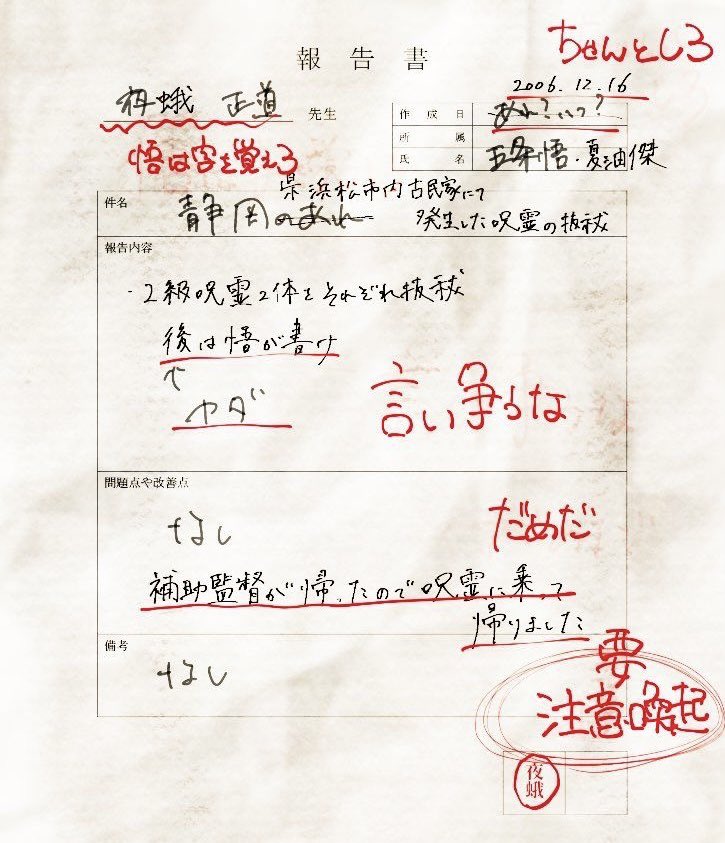 報告書
ちゃんとしろ
夜蛾 正道 先生
悟は字を覚えろ
2006.12.16
作成日 あれ?いつ?
所属
氏名 五条悟・夏油傑
件名
静岡のあれ
県浜松市内古民家にて
発生した呪霊の抜祓
報告内容
・2級呪霊2体をそれぞれ抜祓
後は悟が書け
↑
ヤダ
言い争うな
問題点や改善点
なし
だめだ
補助監督が帰ったので呪霊に乗って
帰りました
備考
なし
要
注意喚起
夜蛾